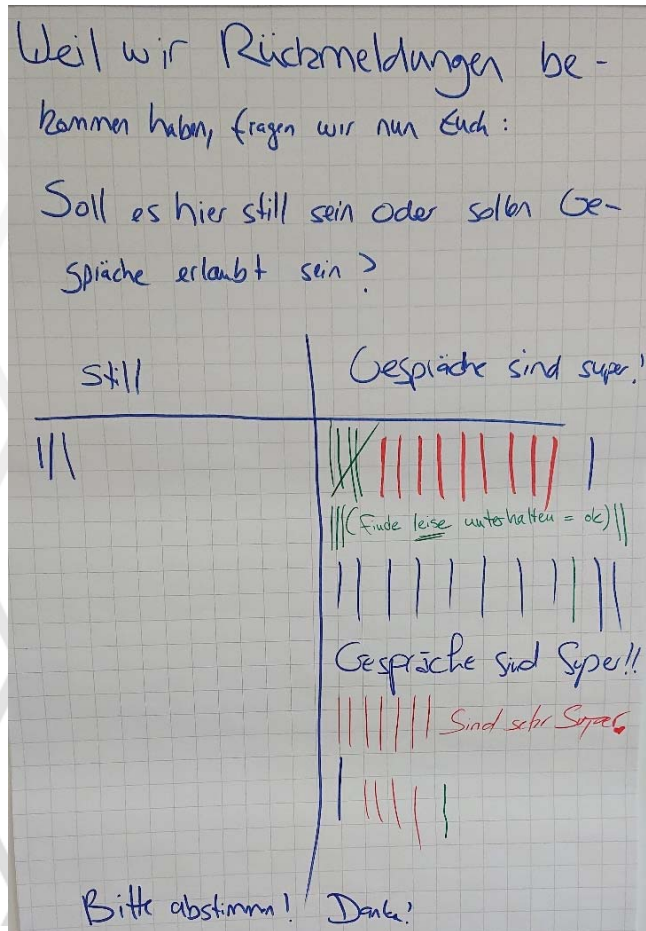 Weil wir Rückmeldungen be-
kommen haben, fragen wir nun Euch:
Soll es hier still sein oder sollen Ge-
spräche erlaubt sein?
Still
Gespräche sind super!
(finde leise unterhalten = ok)
Gespräche sind Super!!
Sind sehr Super
Bitte abstimmn! Danke!